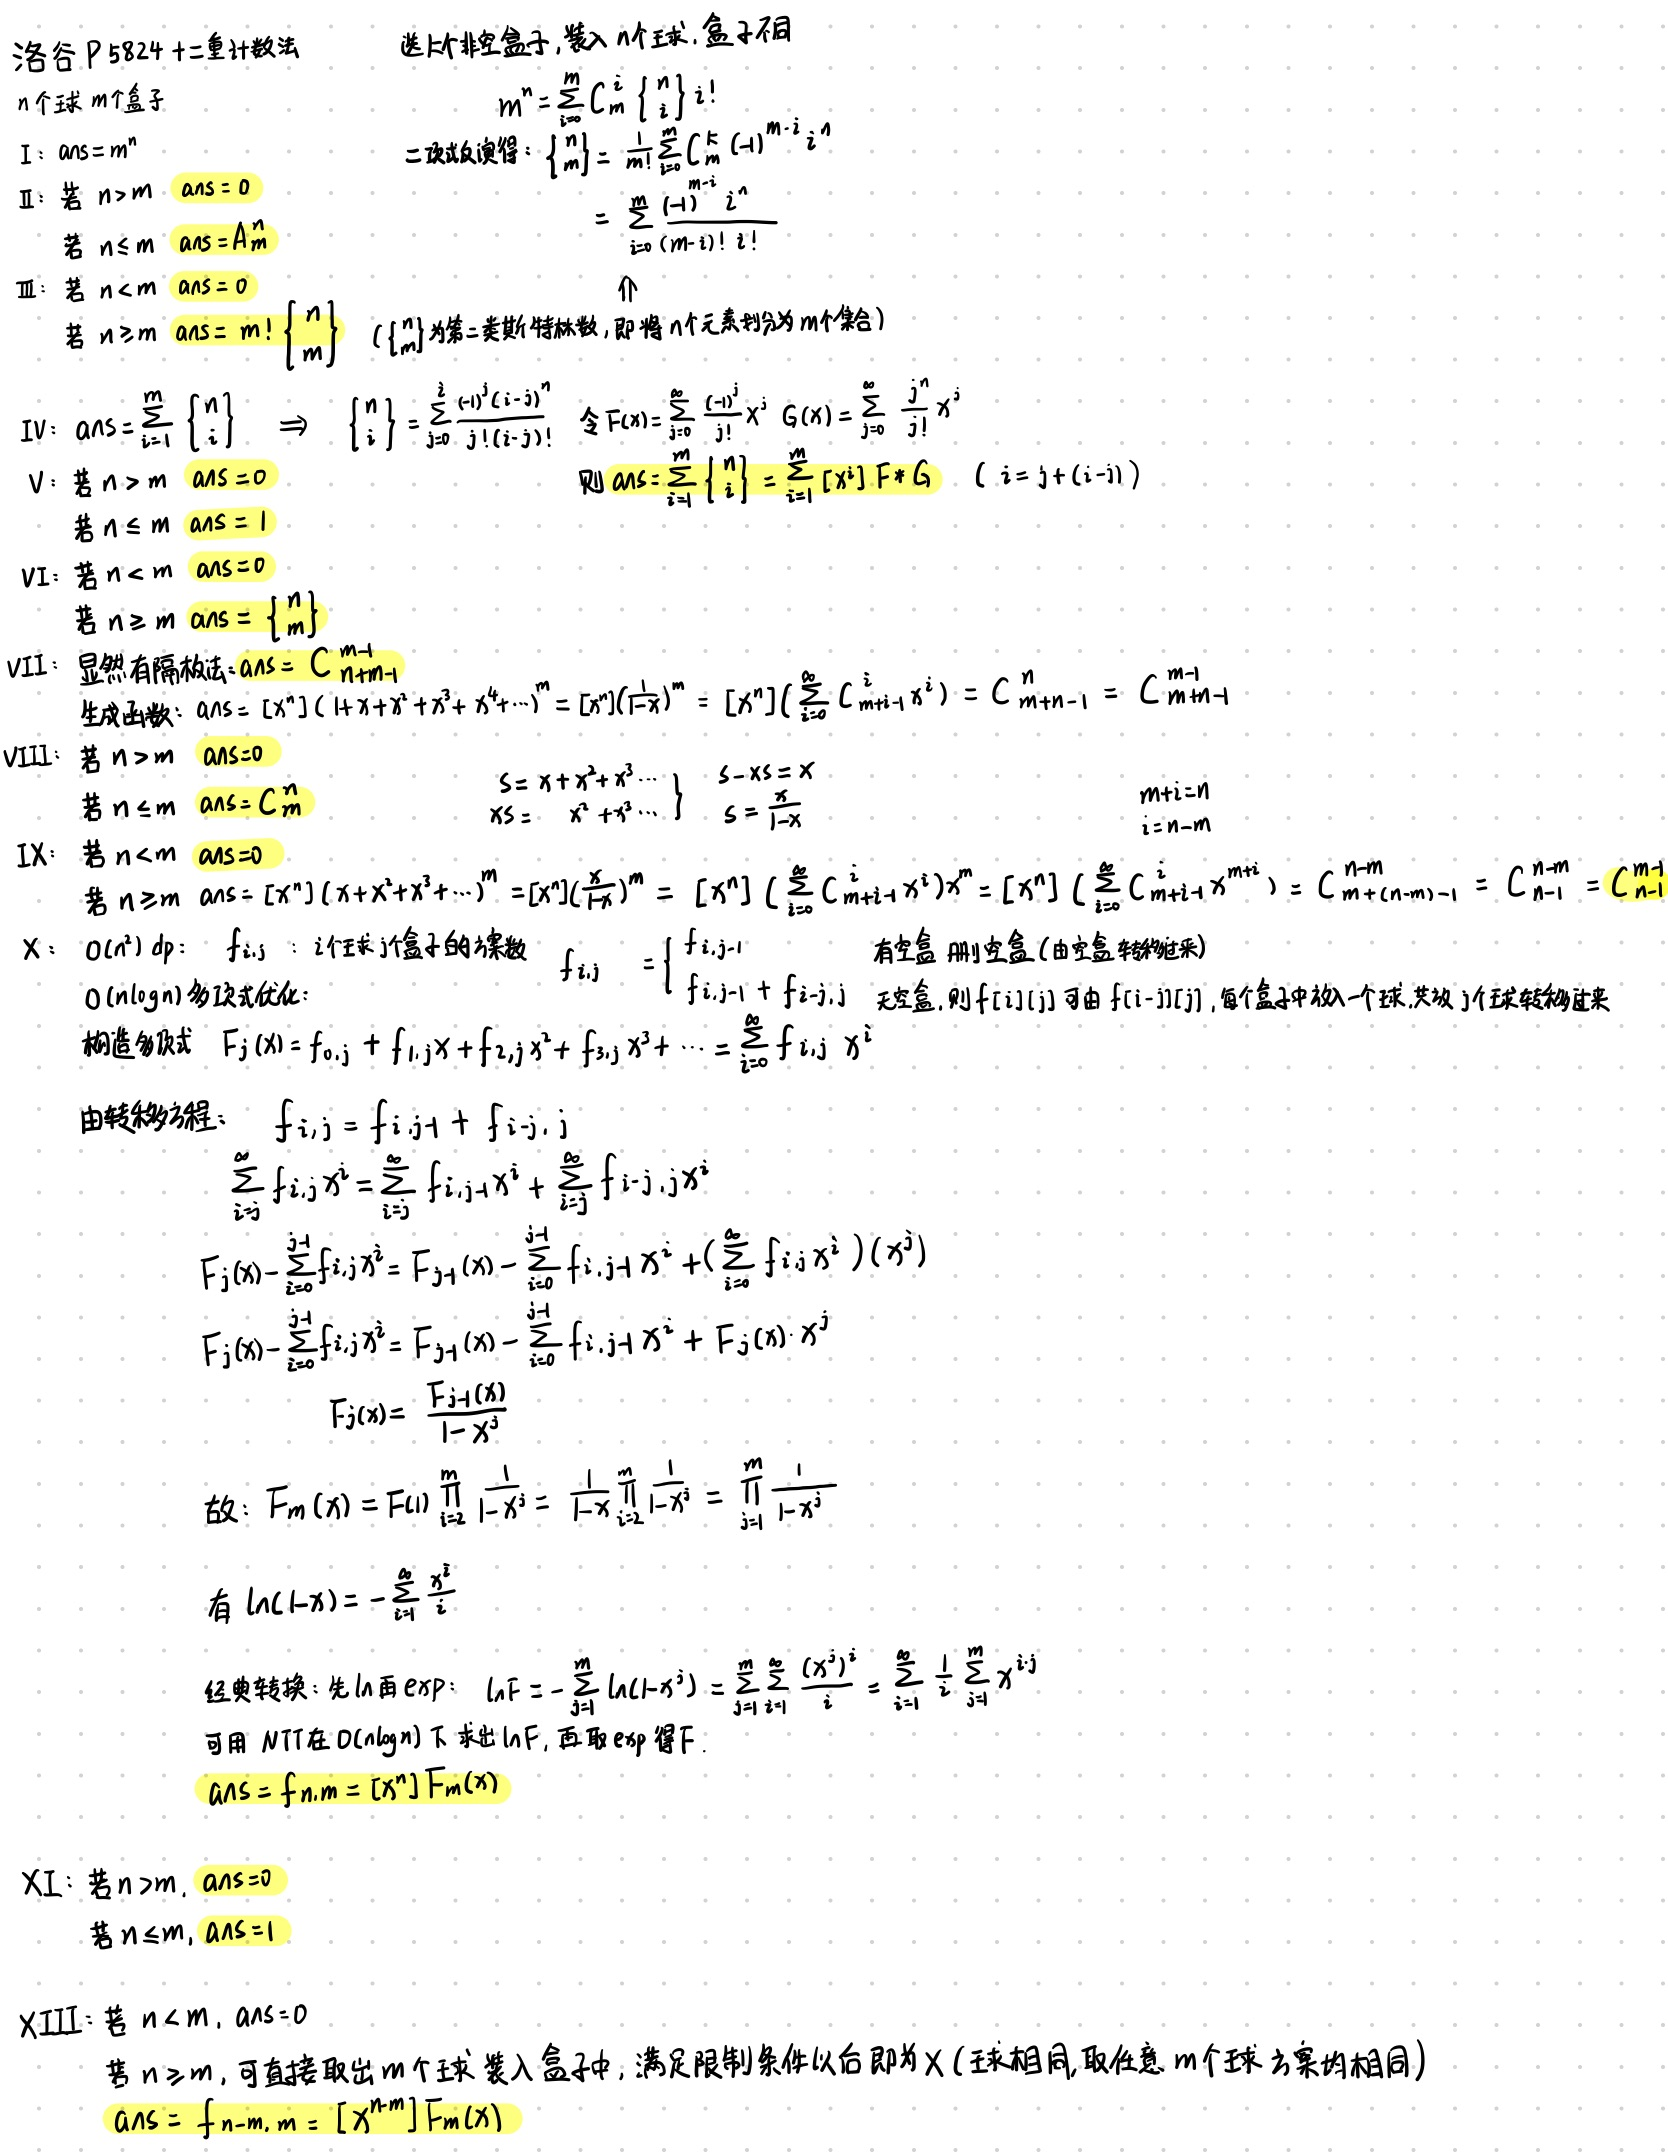 洛谷 P5824 十二重计数法
n个球 m个盒子
I: ans=mⁿ
II: 若 n>m ans=0
若 n≤m ans=A_m^n
III: 若 n<m ans=0
若 n≥m ans= m! {n m} ({n m}为第二类斯特林数,即将n个元素划分为m个集合)
选k个非空盒子,装入n个球.盒子不同
mⁿ = ∑_{i=0}^{m} C_m^i {n i} i!
二项式反演得: {n m} = 1/m! ∑_{i=0}^{m} C_m^k (-1)^{m-i} i^n
= ∑_{i=0}^{m} (-1)^{m-i} i^n / (m-i)! i!
⇑
IV: ans=∑_{i=1}^{m} {n i} ⇒ {n i} = ∑_{j=0}^{i} (-1)^j (i-j)^n / j!(i-j)! 令 F(x)=∑_{j=0}^{∞} (-1)^j/j! x^j G(x)=∑_{j=0}^{∞} j^n/j! x^j
则 ans=∑_{i=1}^{m} {n i} = ∑_{i=1}^{m} [x^i] F*G ( i=j+(i-j) )
V: 若 n>m ans=0
若 n≤m ans=1
VI: 若 n<m ans=0
若 n≥m ans= {n m}
VII: 显然有隔板法: ans= C_{n+m-1}^{m-1}
生成函数: ans=[xⁿ](1+x+x²+x³+x⁴+···)^m = [xⁿ](1/1-x)^m = [xⁿ](∑_{i=0}^{∞} C_{m+i-1}^i x^i) = C_{m+n-1}^n = C_{m+n-1}^{m-1}
VIII: 若 n>m ans=0
若 n≤m ans=C_m^n
S= x+x²+x³··· } S-xS=x
xS= x²+x³··· S= x/1-x
m+i=n
i=n-m
IX: 若 n<m ans=0
若 n≥m ans=[xⁿ](x+x²+x³+···)^m =[xⁿ](x/1-x)^m = [xⁿ](∑_{i=0}^{∞} C_{m+i-1}^i x^i)x^m = [xⁿ](∑_{i=0}^{∞} C_{m+i-1}^i x^{m+i}) = C_{m+(n-m)-1}^{n-m} = C_{n-1}^{n-m} = C_{n-1}^{m-1}
X: O(n²) dp: f_{i,j} : i个球j个盒子的方案数 f_{i,j} = { f_{i,j-1} 有空盒 删空盒(由空盒转移过来)
f_{i,j-1} + f_{i-j,j} 无空盒,则f[i][j]可由 f[i-j][j],每个盒子中放入一个球.共放 j个球转移过来
O(nlogn)多项式优化:
构造多项式 F_j(x)=f_{0,j} + f_{1,j}x+f_{2,j}x²+f_{3,j}x³+ ··· = ∑_{i=0}^{∞} f_{i,j} x^i
由转移方程: f_{i,j} = f_{i,j-1} + f_{i-j,j}
∑_{i=j}^{∞} f_{i,j}x^i = ∑_{i=j}^{∞} f_{i,j-1}x^i + ∑_{i=j}^{∞} f_{i-j,j}x^i
F_j(x)-∑_{i=0}^{j-1}f_{i,j}x^i = F_{j-1}(x) - ∑_{i=0}^{j-1} f_{i,j-1}x^i +(∑_{i=0}^{∞} f_{i,j}x^i)(x^j)
F_j(x)-∑_{i=0}^{j-1}f_{i,j}x^i = F_{j-1}(x) - ∑_{i=0}^{j-1} f_{i,j-1}x^i + F_j(x)·x^j
F_j(x)= F_{j-1}(x) / 1-x^j
故: F_m(x) = F(1) ∏_{i=2}^{m} 1/1-x^j = 1/1-x ∏_{i=2}^{m} 1/1-x^j = ∏_{j=1}^{m} 1/1-x^j
有 ln(1-x)= -∑_{i=1}^{∞} x^i/i
经典转换: 先ln再exp: lnF = -∑_{j=1}^{m} ln(1-x^j) = ∑_{j=1}^{m} ∑_{i=1}^{∞} (x^j)^i/i = ∑_{i=1}^{∞} 1/i ∑_{j=1}^{m} x^{i·j}
可用 NTT在O(nlogn)下求出lnF,再取exp得F.
ans=f_{n,m} = [xⁿ]F_m(x)
XI: 若n>m, ans=0
若n≤m, ans=1
XIII: 若 n<m, ans=0
若 n≥m,可直接取出m个球装入盒子中,满足限制条件以后即为X(球相同,取任意m个球方案均相同)
ans= f_{n-m,m} = [x^{n-m}]F_m(x)